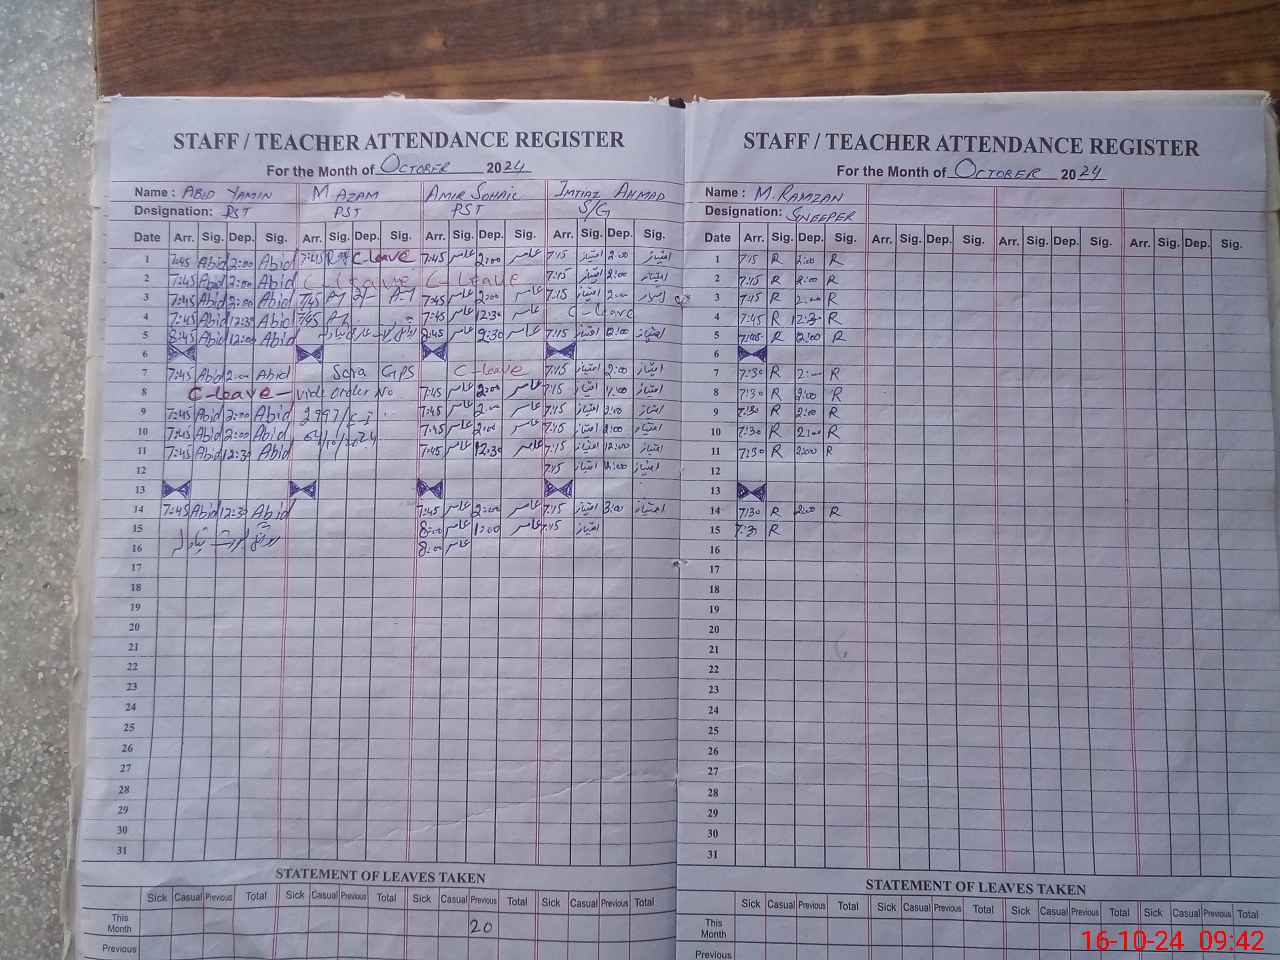 STAFF / TEACHER ATTENDANCE REGISTER
For the Month of October 2024
Name : Abid Yamin M. Azam Amir Sohail Imtiaz Ahmad
Designation: PST PST PST S/G
Date Arr. Sig. Dep. Sig. Arr. Sig. Dep. Sig. Arr. Sig. Dep. Sig. Arr. Sig. Dep. Sig.
1 7:45 Abid 2:00 Abid 7:45 C-leave 7:45 عامر 2:00 عامر 7:15 امتیاز 2:00 امتیاز
2 7:45 Abid 2:00 Abid C-leave C-leave 7:15 امتیاز 2:00 امتیاز
3 7:45 Abid 2:00 Abid 7:45 7:45 عامر 2:00 عامر 7:15 امتیاز 2:00 امتیاز
4 7:45 Abid 12:30 Abid 7:45 7:45 عامر 12:30 عامر C-leave
5 8:45 Abid 12:00 Abid 8:45 عامر عامر 7:15 امتیاز امتیاز
6
7 7:45 Abid 2:00 Abid GPS C-leave 7:15 امتیاز 2:00 امتیاز
8 C-leave — vide order No 7:45 عامر 2:00 عامر 7:15 امتیاز امتیاز
9 7:45 Abid 2:00 Abid 7:45 عامر 2:00 عامر 7:15 امتیاز 2:00 امتیاز
10 7:45 Abid 2:00 Abid 7:45 عامر 2:00 عامر 7:15 امتیاز 2:00 امتیاز
11 7:45 Abid 12:30 Abid 7:45 عامر 12:30 عامر 7:15 امتیاز 12:00 امتیاز
12 7:15 امتیاز 2:00 امتیاز
13
14 7:45 Abid 12:30 Abid 7:45 عامر 2:00 عامر 7:15 امتیاز امتیاز
15 8:00 عامر 1:00 عامر 7:15 امتیاز
16 8:00 عامر
17
18
19
20
21
22
23
24
25
26
27
28
29
30
31
STATEMENT OF LEAVES TAKEN
Sick Casual Previous Total Sick Casual Previous Total Sick Casual Previous Total Sick Casual Previous Total
This Month 20
Previous
STAFF / TEACHER ATTENDANCE REGISTER
For the Month of October 2024
Name : M. Ramzan
Designation: Sweeper
Date Arr. Sig. Dep. Sig. Arr. Sig. Dep. Sig. Arr. Sig. Dep. Sig. Arr. Sig. Dep. Sig.
1 7:15 R 2:00 R
2 R 2:00 R
3 R 2:00 R
4 7:45 R 12:30 R
5 R R
6
7 7:30 R 2:00 R
8 7:30 R 2:00 R
9 7:30 R 2:00 R
10 7:30 R 2:00 R
11 7:30 R 2:00 R
12
13
14 7:30 R 2:00 R
15 7:30 R
16
17
18
19
20
21
22
23
24
25
26
27
28
29
30
31
STATEMENT OF LEAVES TAKEN
Sick Casual Previous Total Sick Casual Previous Total Sick Casual Previous Total Sick Casual Previous Total
This Month
Previous
16-10-24 09:42